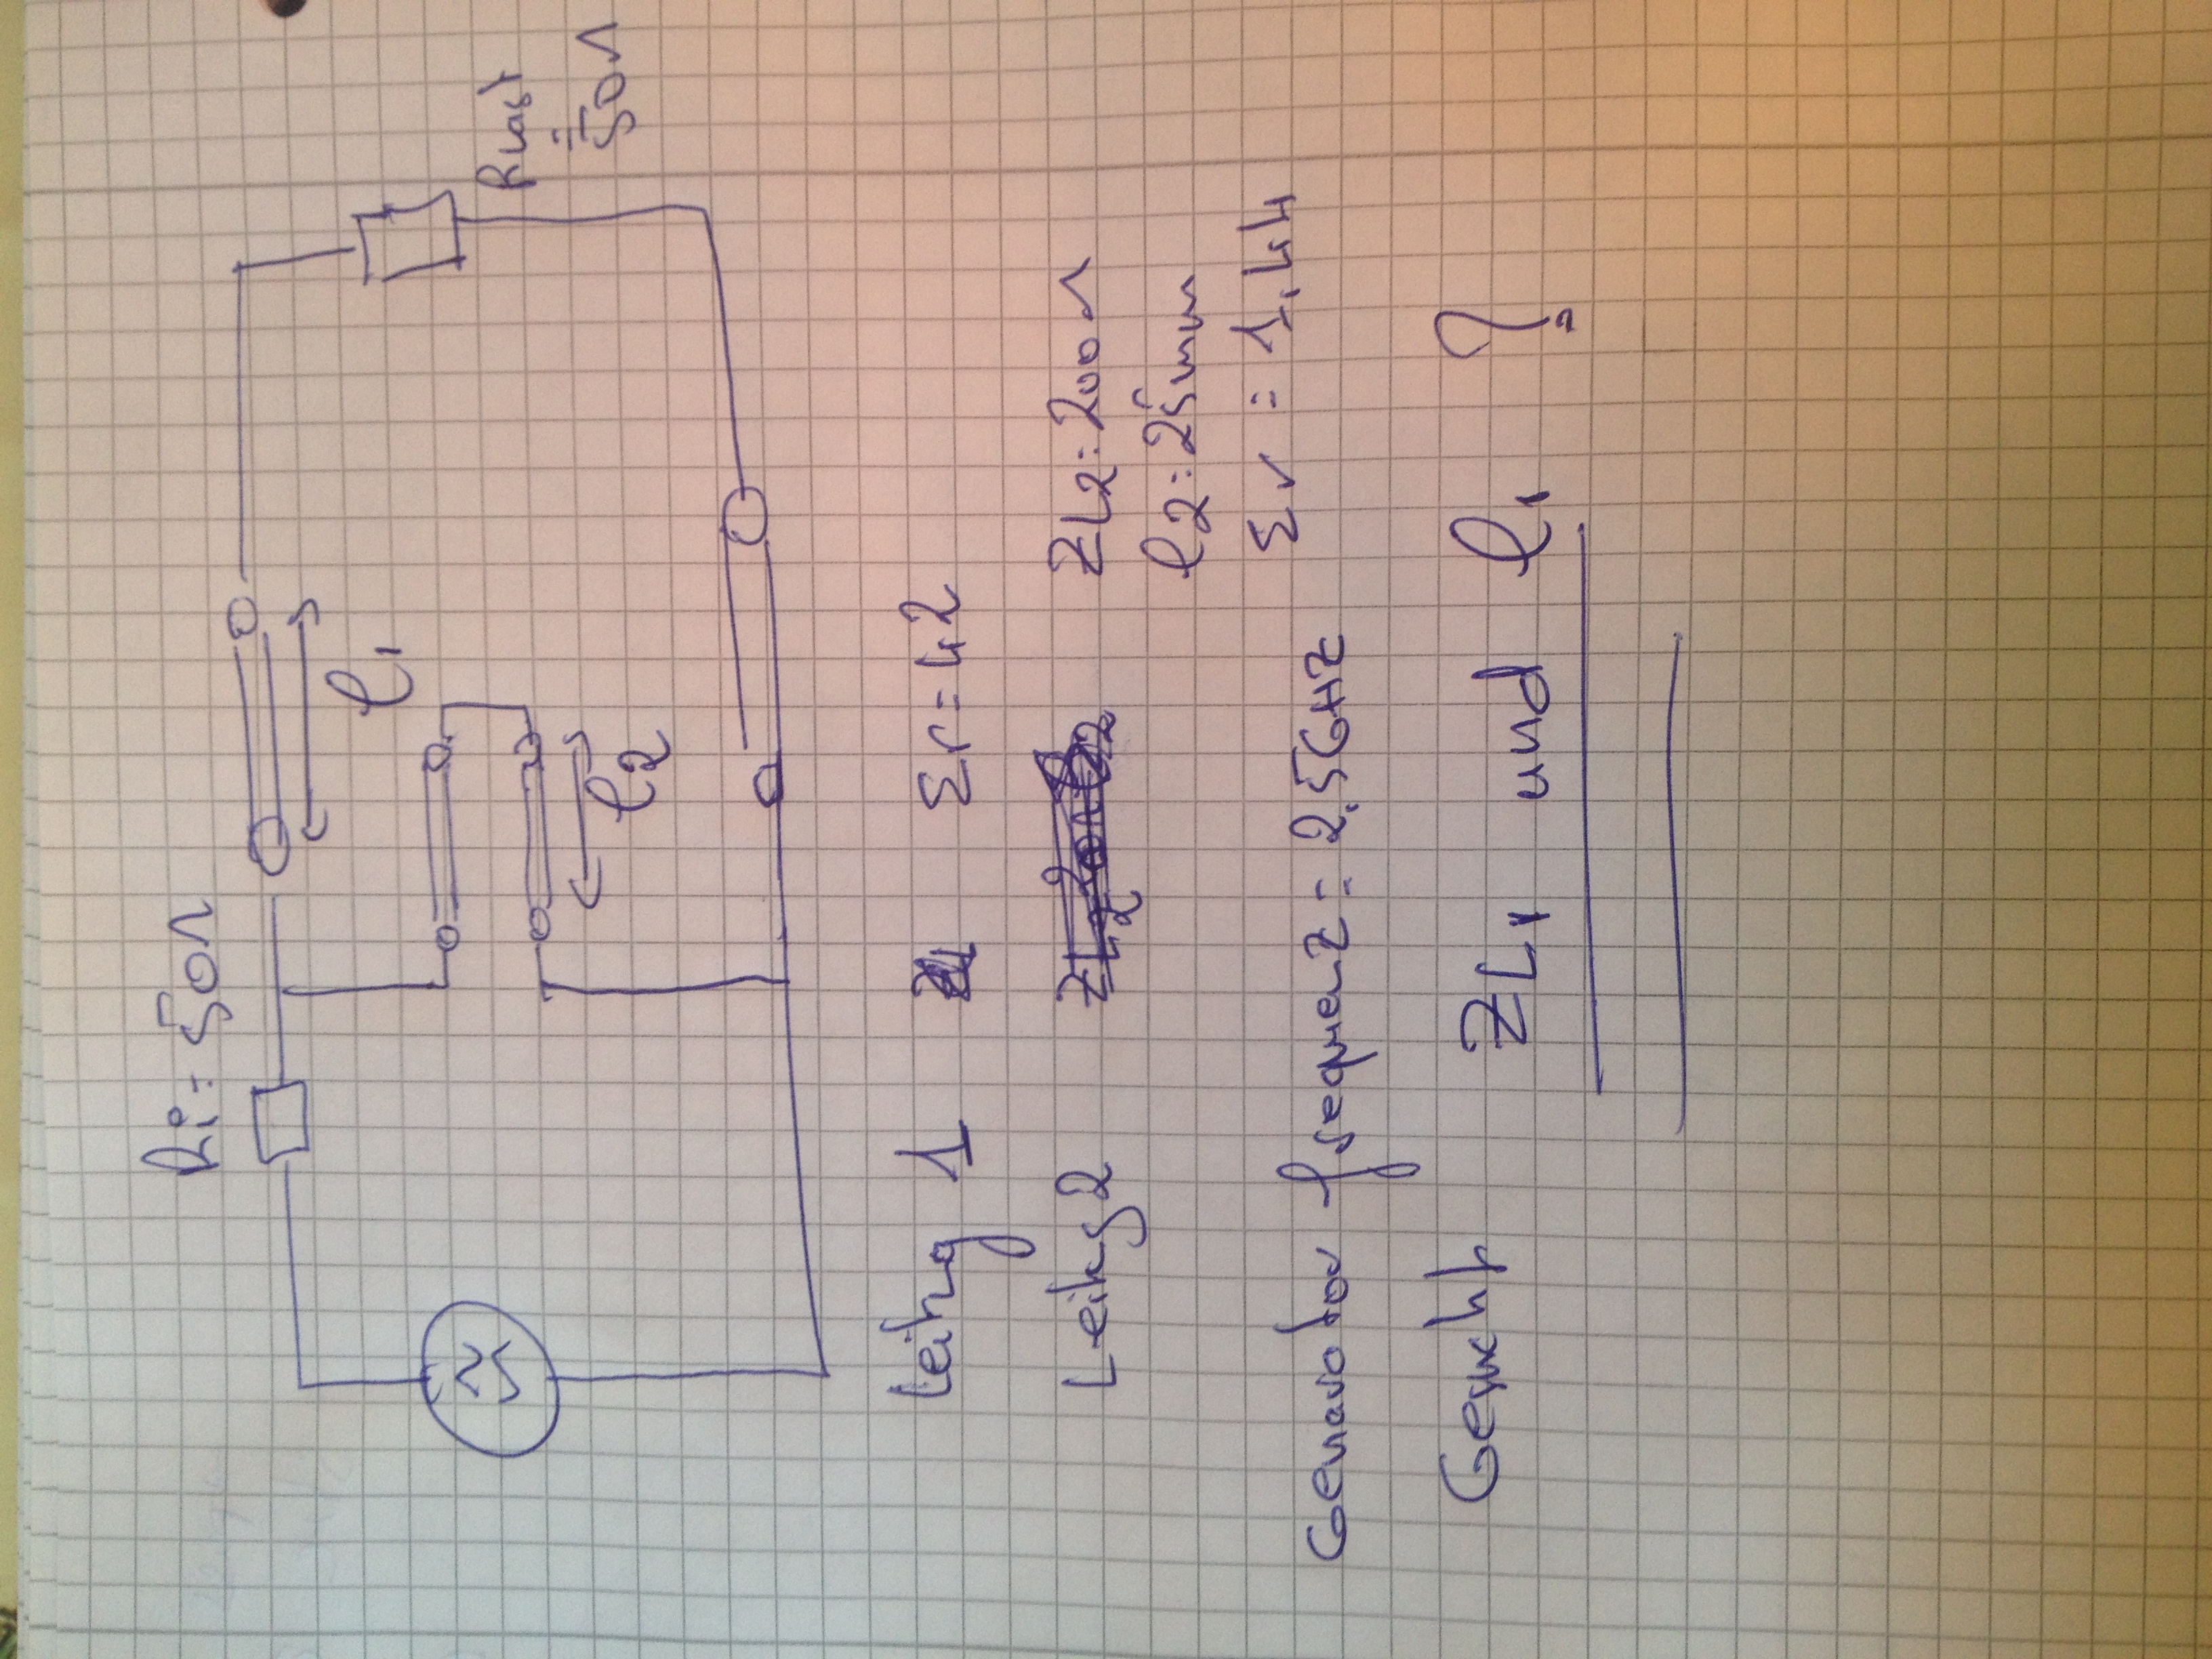 Ri = 50Ω
Rlast
= 50Ω
l1
l2
Leitng 1 Er = 42
Leitng 2 ZL2 = 200Ω
l2 = 25mm
Er = 1,44
Generator frequenz = 2.5GHz
Gesucht ZL1 und l1 ?